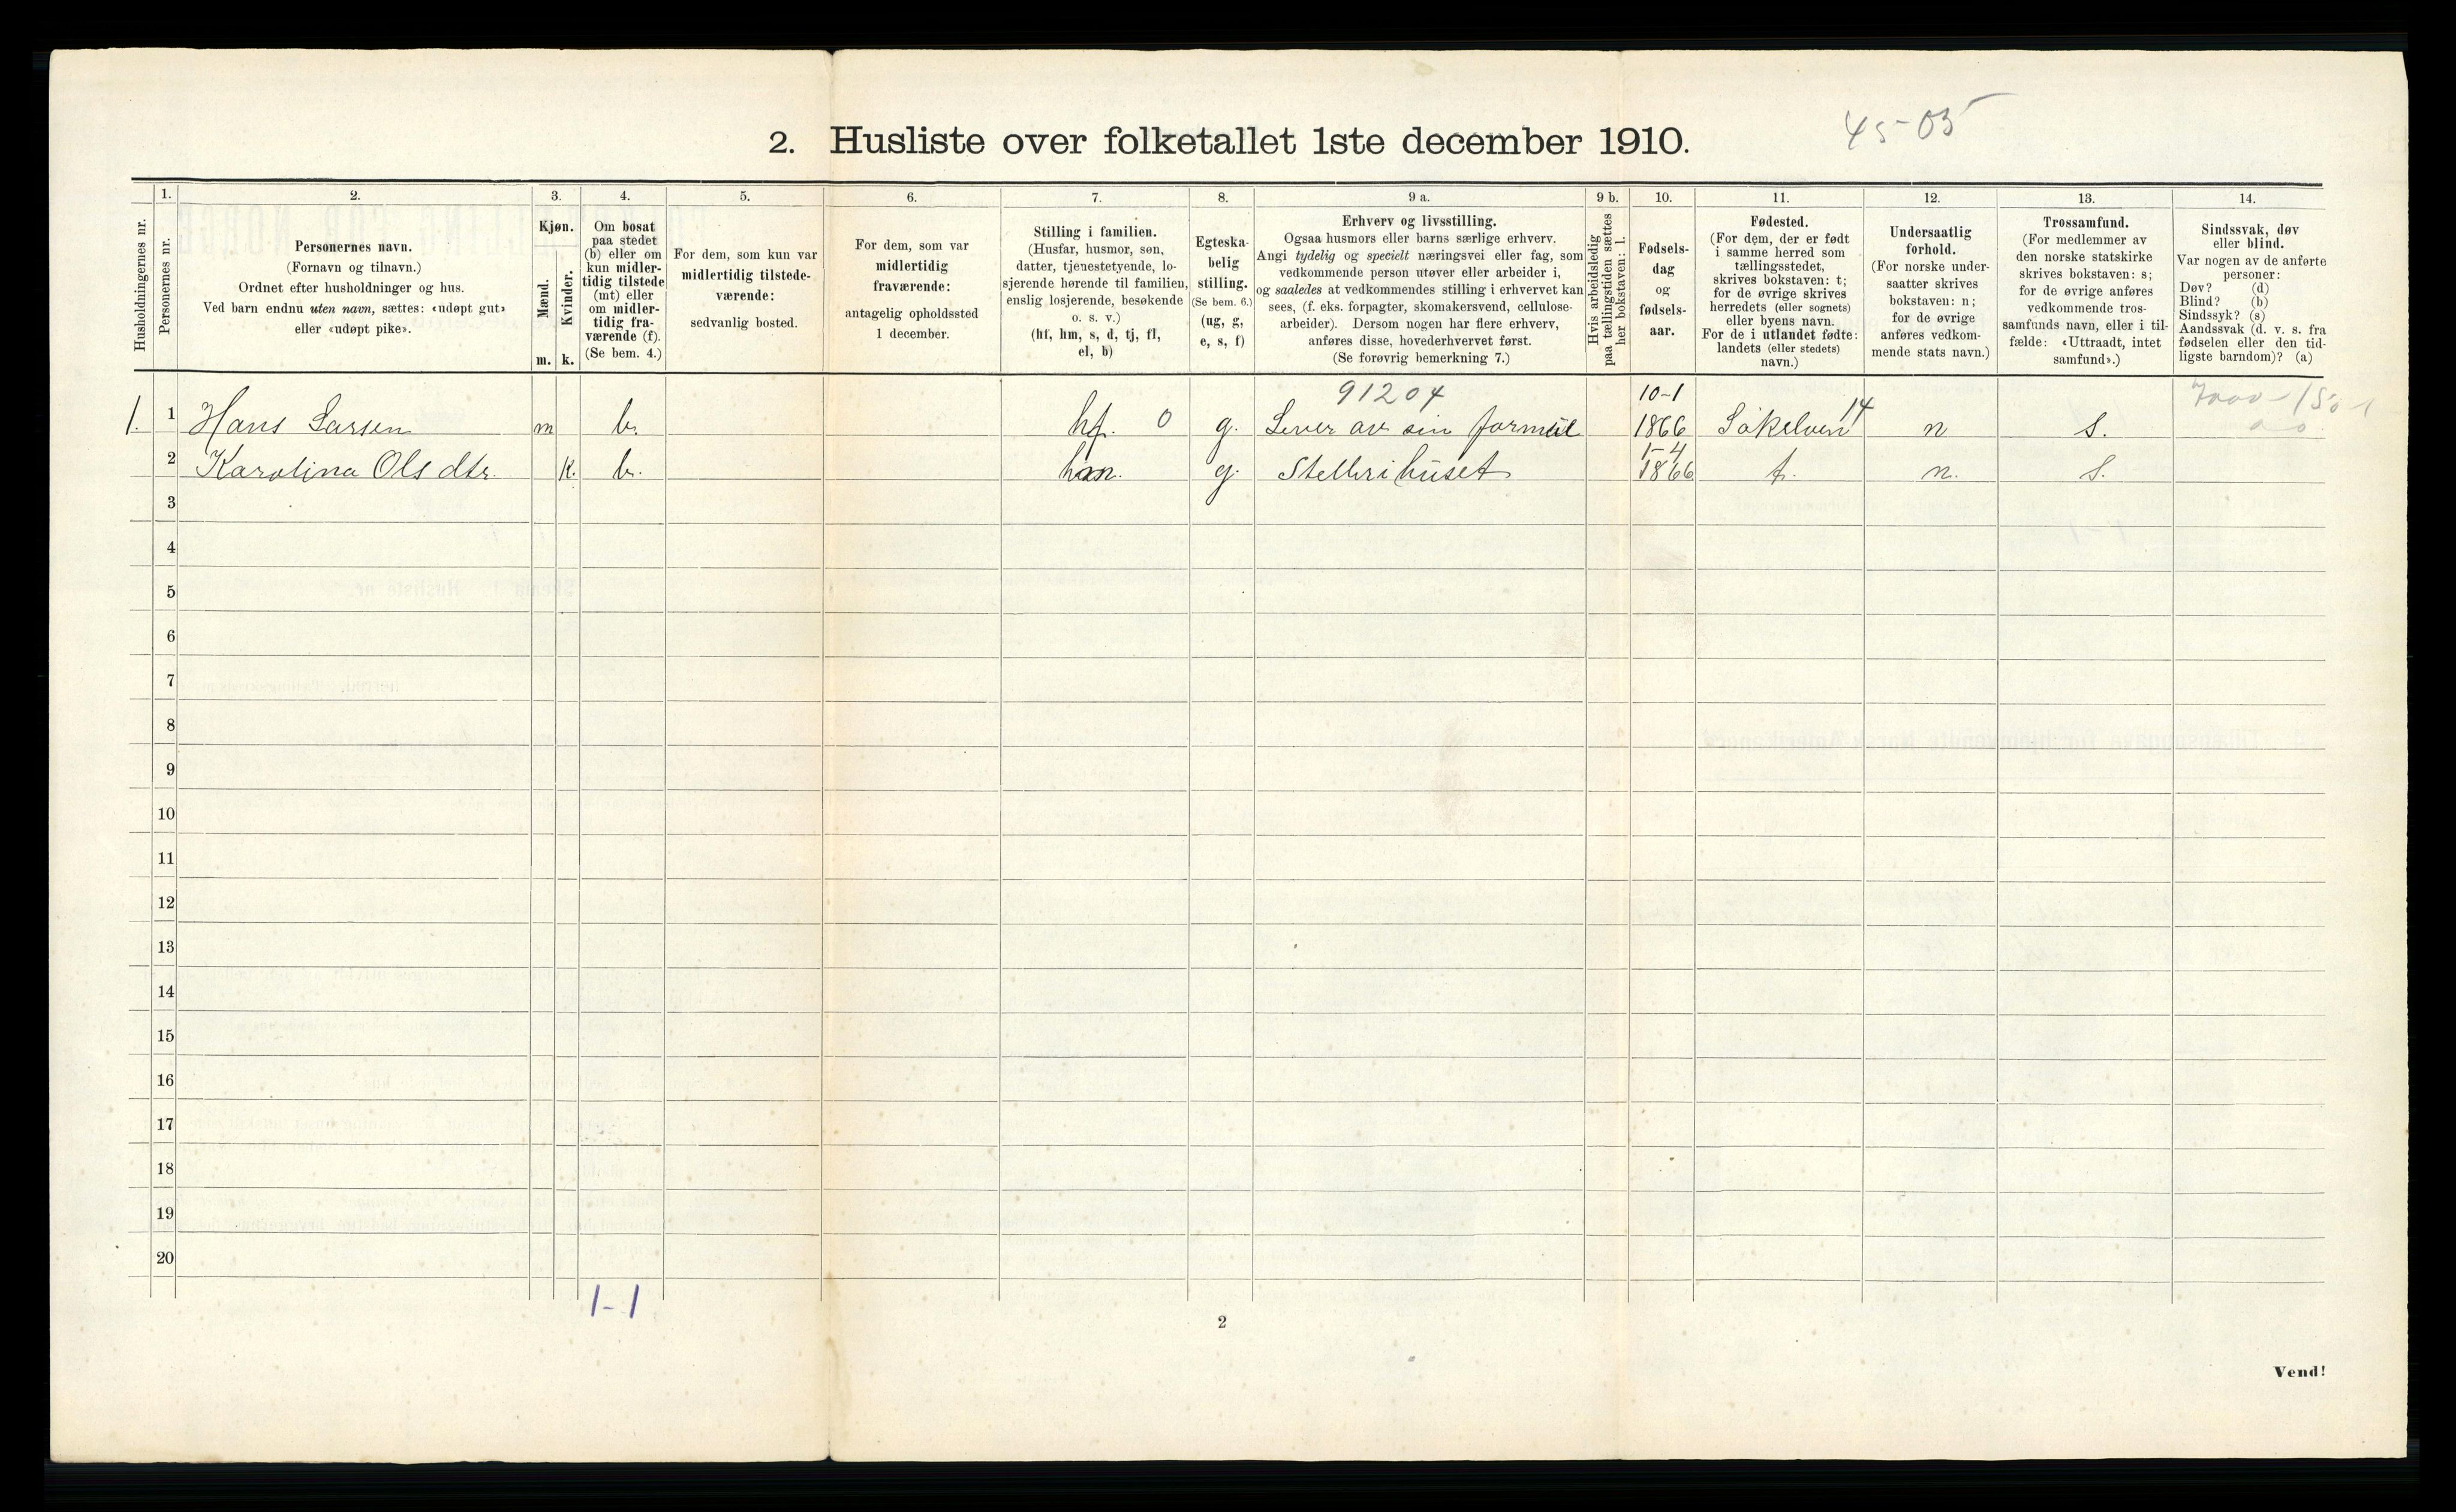 45-05
2. Husliste over folketallet 1ste december 1910.
Husholdningernes nr.
1.
Personernes nr.
2.
Personernes navn.
(Fornavn og tilnavn.)
Ordnet efter husholdninger og hus.
Ved barn endnu uten navn, sættes: «udøpt gut»
eller «udøpt pike».
3.
Kjøn.
Mænd.
Kvinder.
m. k.
4.
Om bosat
paa stedet
(b) eller om
kun midler-
tidig tilstede
(mt) eller
om midler-
tidig fra-
værende (f).
(Se bem. 4.)
5.
For dem, som kun var
midlertidig tilstede-
værende:
sedvanlig bosted.
6.
For dem, som var
midlertidig
fraværende:
antagelig opholdssted
1 december.
7.
Stilling i familien.
(Husfar, husmor, søn,
datter, tjenestetyende, lo-
sjerende hørende til familien,
enslig losjerende, besøkende
o. s. v.)
(hf, hm, s, d, tj, fl,
el, b)
8.
Egteska-
belig
stilling.
(Se bem. 6.)
(ug, g,
e, s, f)
9 a.
Erhverv og livsstilling.
Ogsaa husmors eller barns særlige erhverv.
Angi tydelig og specielt næringsvei eller fag, som
vedkommende person utøver eller arbeider i,
og saaledes at vedkommendes stilling i erhvervet kan
sees, (f. eks. forpagter, skomakersvend, cellulose-
arbeider). Dersom nogen har flere erhverv,
anføres disse, hovederhvervet først.
(Se forøvrig bemerkning 7.)
9 b.
Hvis arbeidsledig
paa tællingstiden sættes
her bokstaven: l.
10.
Fødsels-
dag
og
fødsels-
aar.
11.
Fødested.
(For dem, der er født
i samme herred som
tællingsstedet,
skrives bokstaven: t;
for de øvrige skrives
herredets (eller sognets)
eller byens navn.
For de i utlandet fødte:
landets (eller stedets)
navn.)
12.
Undersaatlig
forhold.
(For norske under-
saatter skrives
bokstaven: n;
for de øvrige
anføres vedkom-
mende stats navn.)
13.
Trossamfund.
(For medlemmer av
den norske statskirke
skrives bokstaven: s;
for de øvrige anføres
vedkommende tros-
samfunds navn, eller i til-
fælde: «Uttraadt, intet
samfund».)
14.
Sindssvak, døv
eller blind.
Var nogen av de anførte
personer:
Døv? (d)
Blind? (b)
Sindssyk? (s)
Aandssvak (d. v. s. fra
fødselen eller den tid-
ligste barndom)? (a)
91204 10-1 14
1. 1 Hans Larsen m b. hf. 0 g. Lever av sin formue 1866 Søkelven n s.
1-4
2 Karolina Olsdtr. k. b. hm. g. Steller i huset 1866 t. n. s.
3
4
5
6
7
8
9
10
11
12
13
14
15
16
17
18
19
20
1-1
2
Vend!